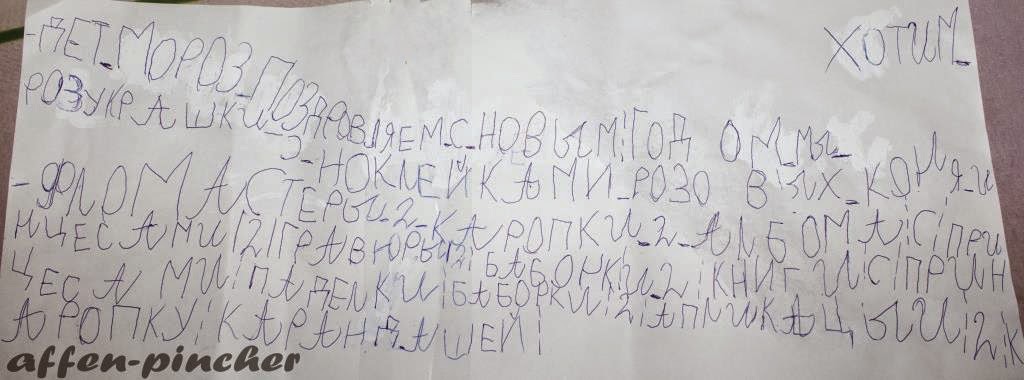 -ДЕТ_МОРОЗ_ПОЗДРОВЛЯЕМ_С_НОВЫМ¦ГОДОМ_МЫ_ ХОТИМ_
РОЗУКРАШКИ_З_НОКЛЕЙКАМИ_РОЗОВЫХ_КОНЯ_И
-ФЛОМАСТЕРЫ_2_КАРОПКИ_2_АЛБОМА¦С¦ПРИ
НЦЕСАМИ¦2¦ГРАВЮРЫ¦БАБОРКИ_2¦КНИГИ¦С¦ПРИН
ЦЕСАМИ¦ПАДЕЛКИ¦БАБОРКИ¦2¦АПЛИКАЦЫИ¦2¦К
АРОПКУ¦КАРАНДАШЕЙ¦
affen-pincher